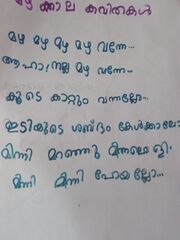 മഴ ക്കാല കവിതകൾ
മഴ മഴ മഴ മഴ വന്നേ...
ആഹാ! നല്ല മഴ വന്നേ..
കൂടെ കാറ്റും വന്നല്ലോ...
ഇടിയുടെ ശബ്ദം കേൾക്കാലോ
മിന്നി മറഞ്ഞു മിന്നലൊളി
മിന്നി മിന്നി പോയല്ലോ...